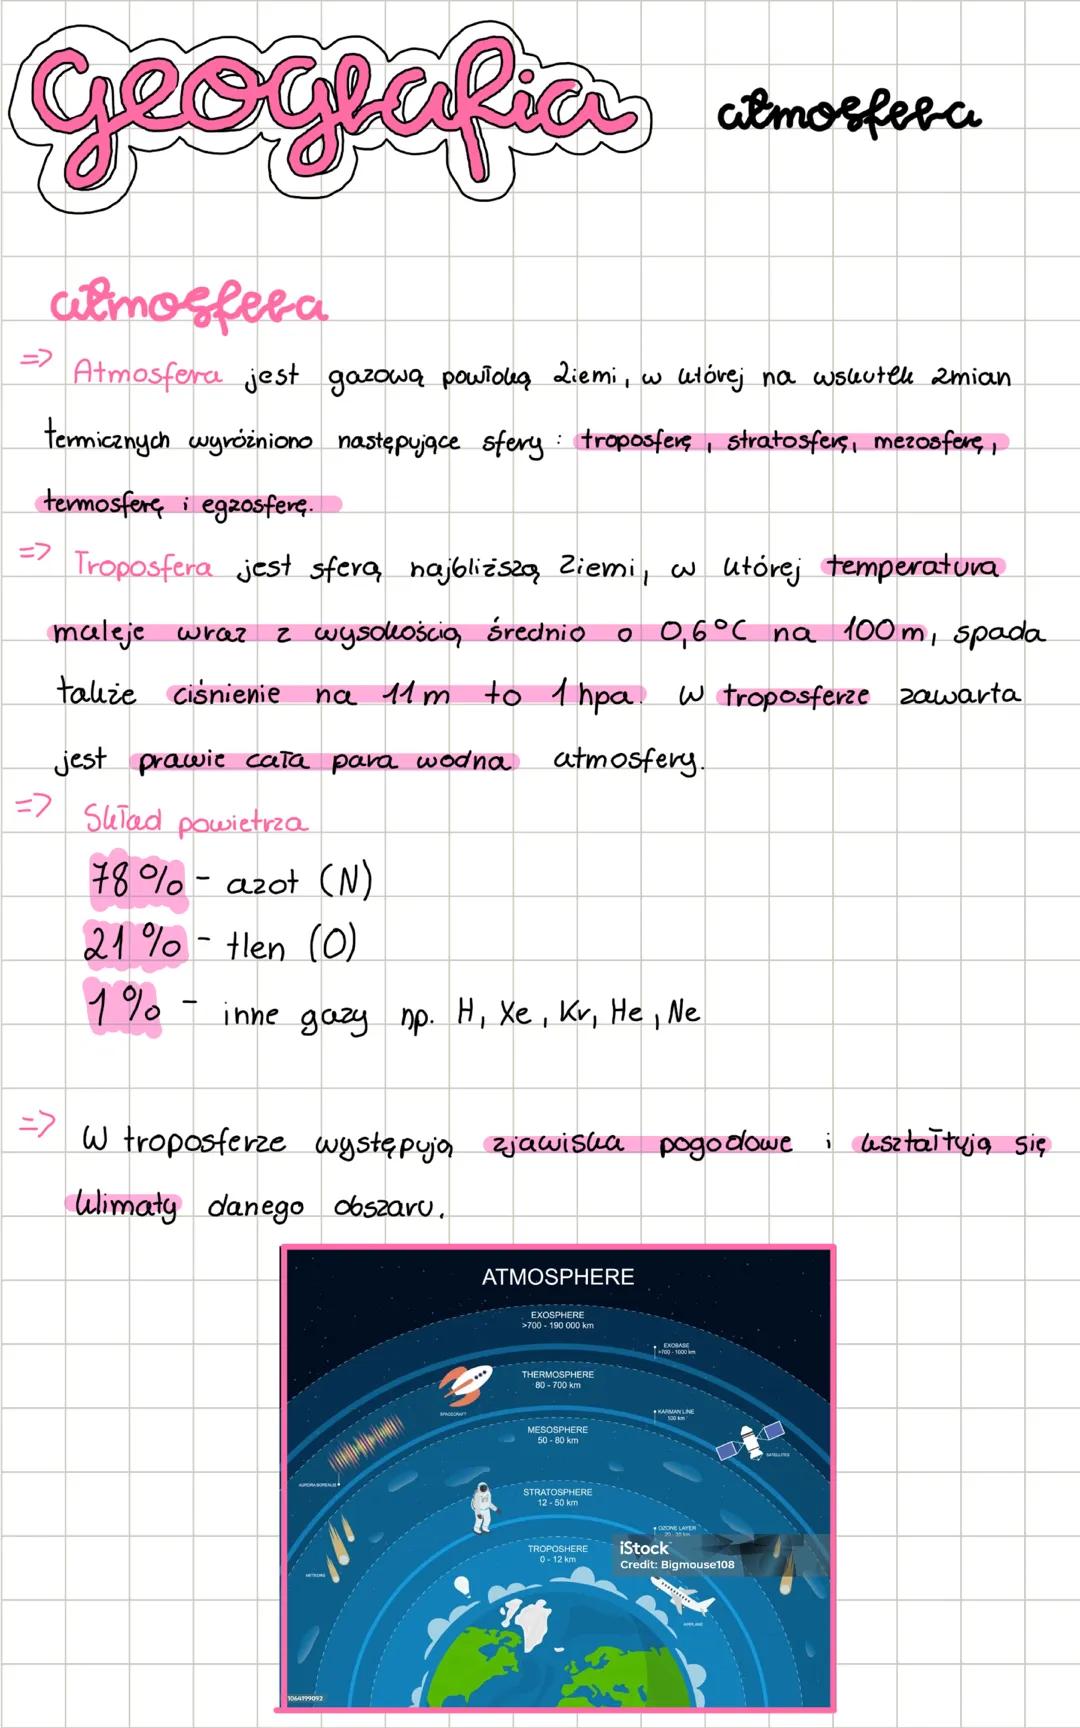 geografia
atmosfera
atmosfera
=> Atmosfera jest gazową powłoką Ziemi, w której na wskutek zmian
termicznych wyróżniono następujące sfery : troposferę, stratosferę, mezosferę,
termosferę i egzosferę.
=> Troposfera jest sferą najbliższą Ziemi, w której temperatura
maleje wraz z wysokością średnio o 0,6°C na 100m, spada
także ciśnienie na 11m to 1 hpa. W troposferze zawarta
jest prawie cała para wodna atmosfery.
=> Skład powietrza
78% - azot (N)
21% - tlen (O)
1% - inne gazy np. H, Xe, Kr, He, Ne
=> W troposferze występują zjawiska pogodowe i kształtują się
klimaty danego obszaru.
ATMOSPHERE
EXOSPHERE
>700 - 190 000 km
EXOBASE
>700 - 1000 km
THERMOSPHERE
80 - 700 km
SPACECRAFT
KARMAN LINE
100 km
MESOSPHERE
50 - 80 km
SATELLITES
AURORA BOREALIS
STRATOSPHERE
12 - 50 km
OZONE LAYER
20 - 30 km
TROPOSHERE
0 - 12 km
iStock
Credit: Bigmouse108
METEORS
AIRPLANE
1064199092